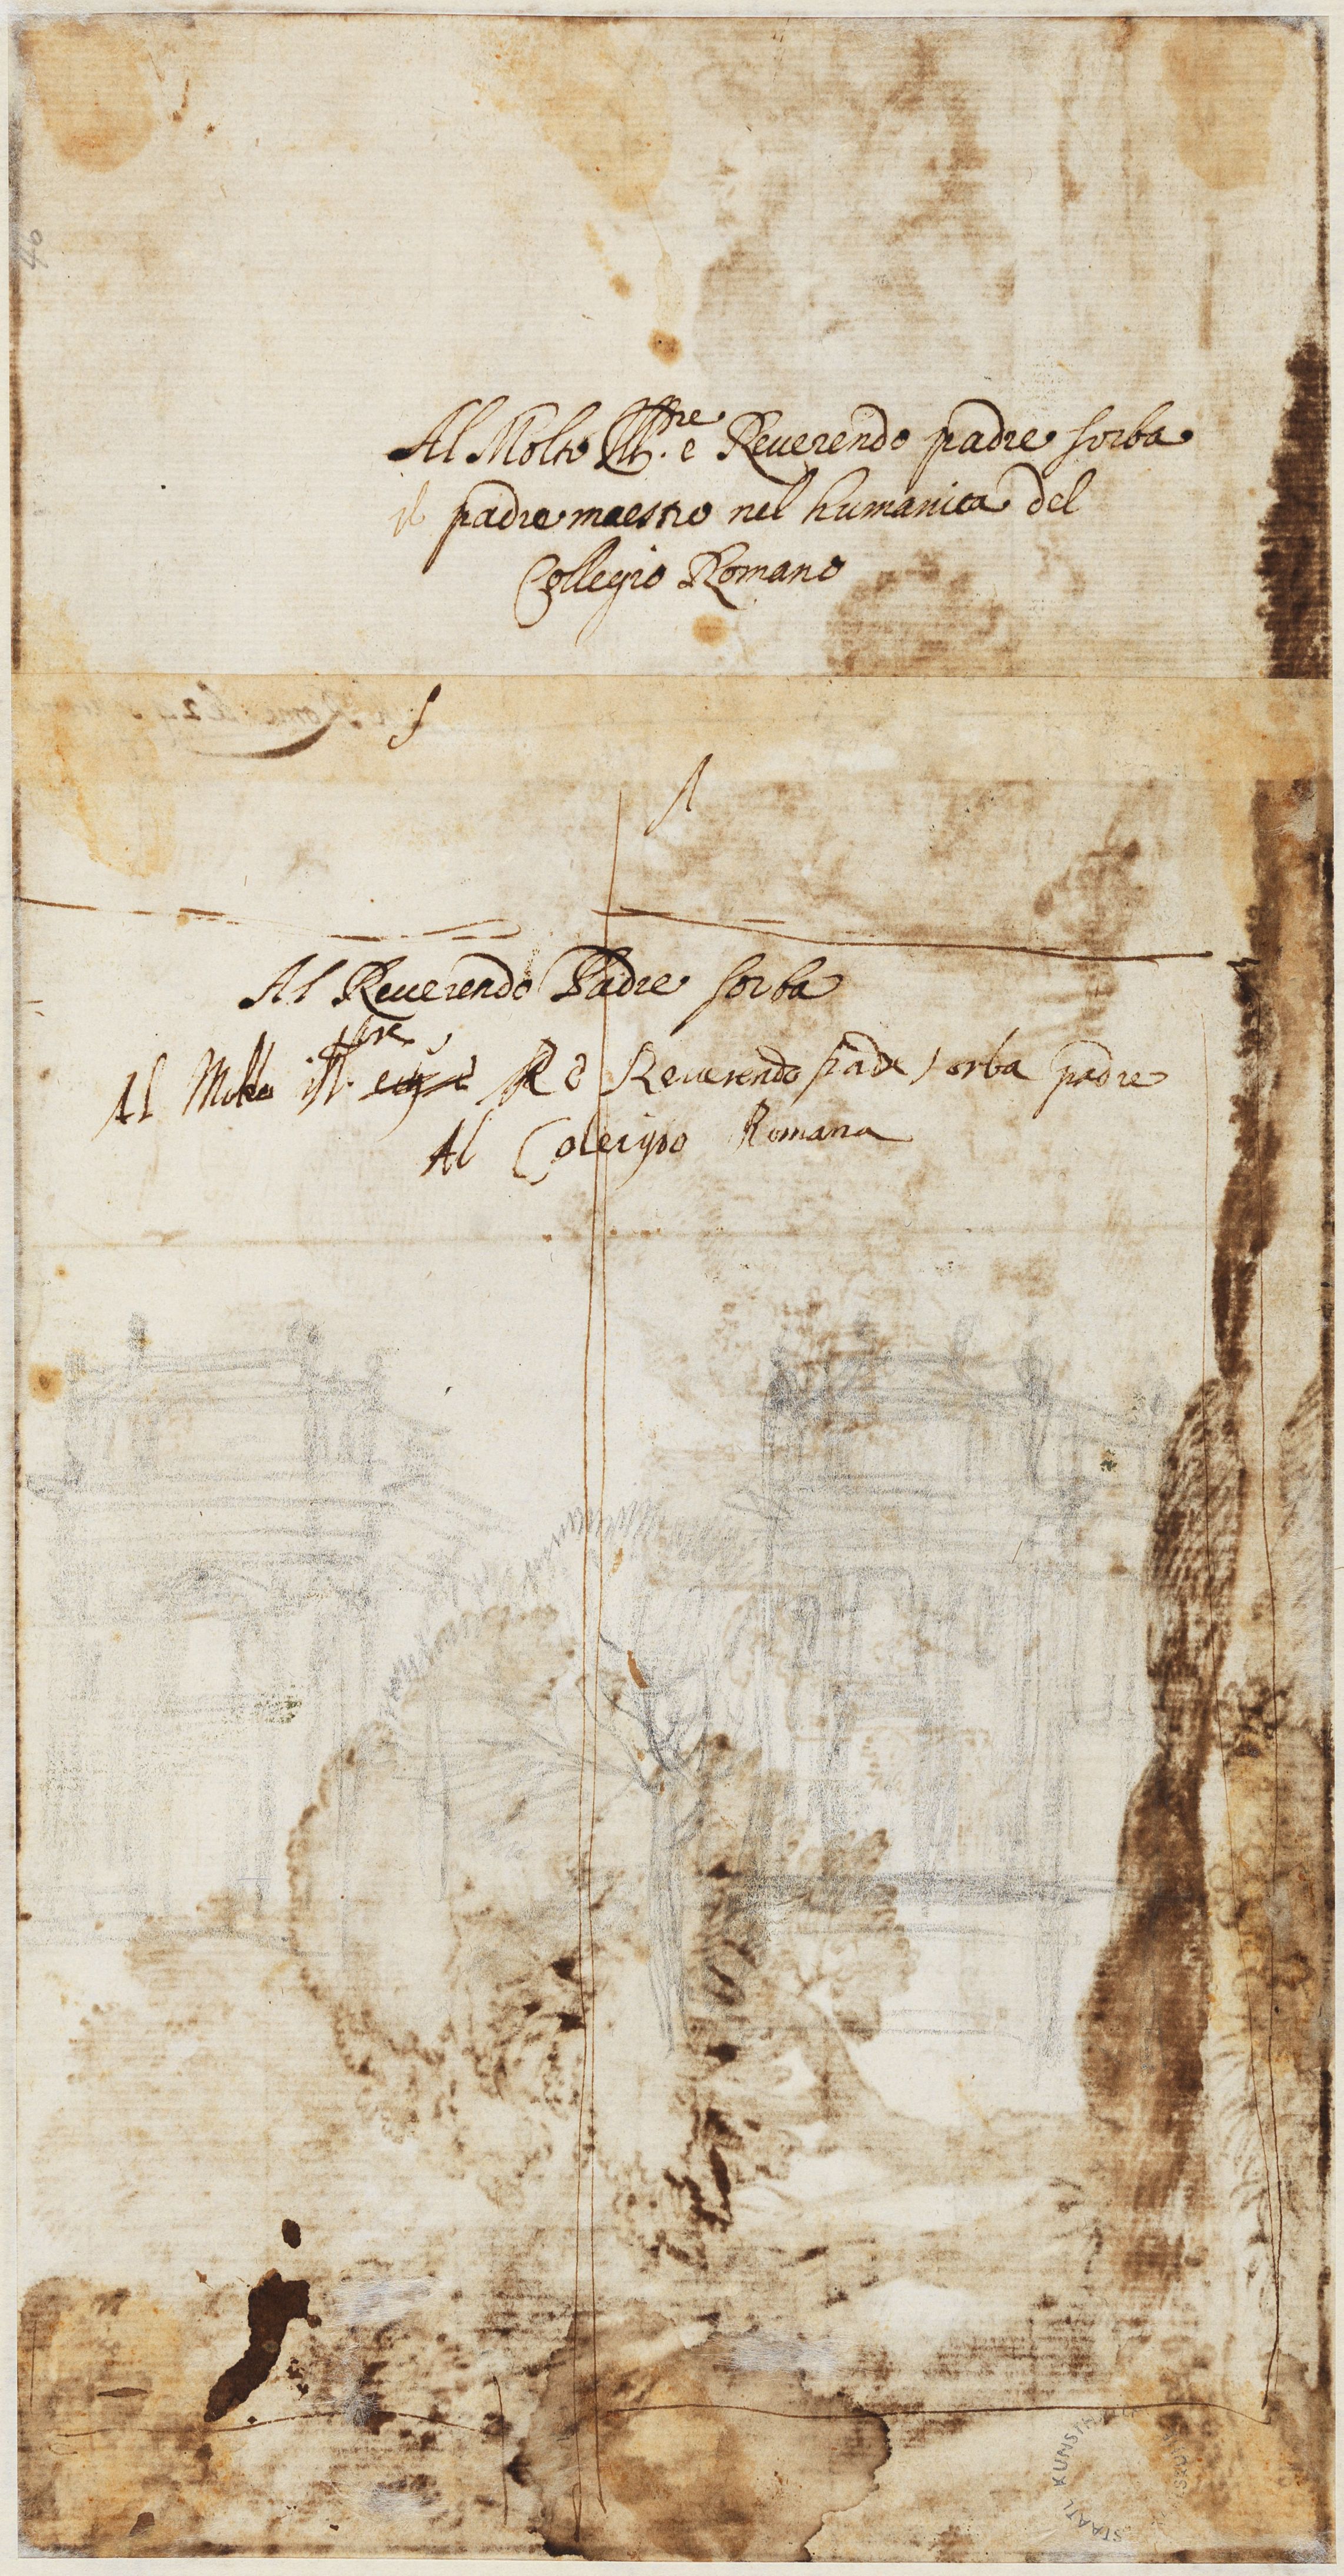 40
Al Molto Ill.re e Reuerendo padre sorba
il padre maestro nel humanita del
Collegio Romano
Al Reuerendo Padre sorba
Al Molto ill.re R e Reuerendo padr sorba padre
Al Colleigio Romana
STAATL KUNSTHALLE